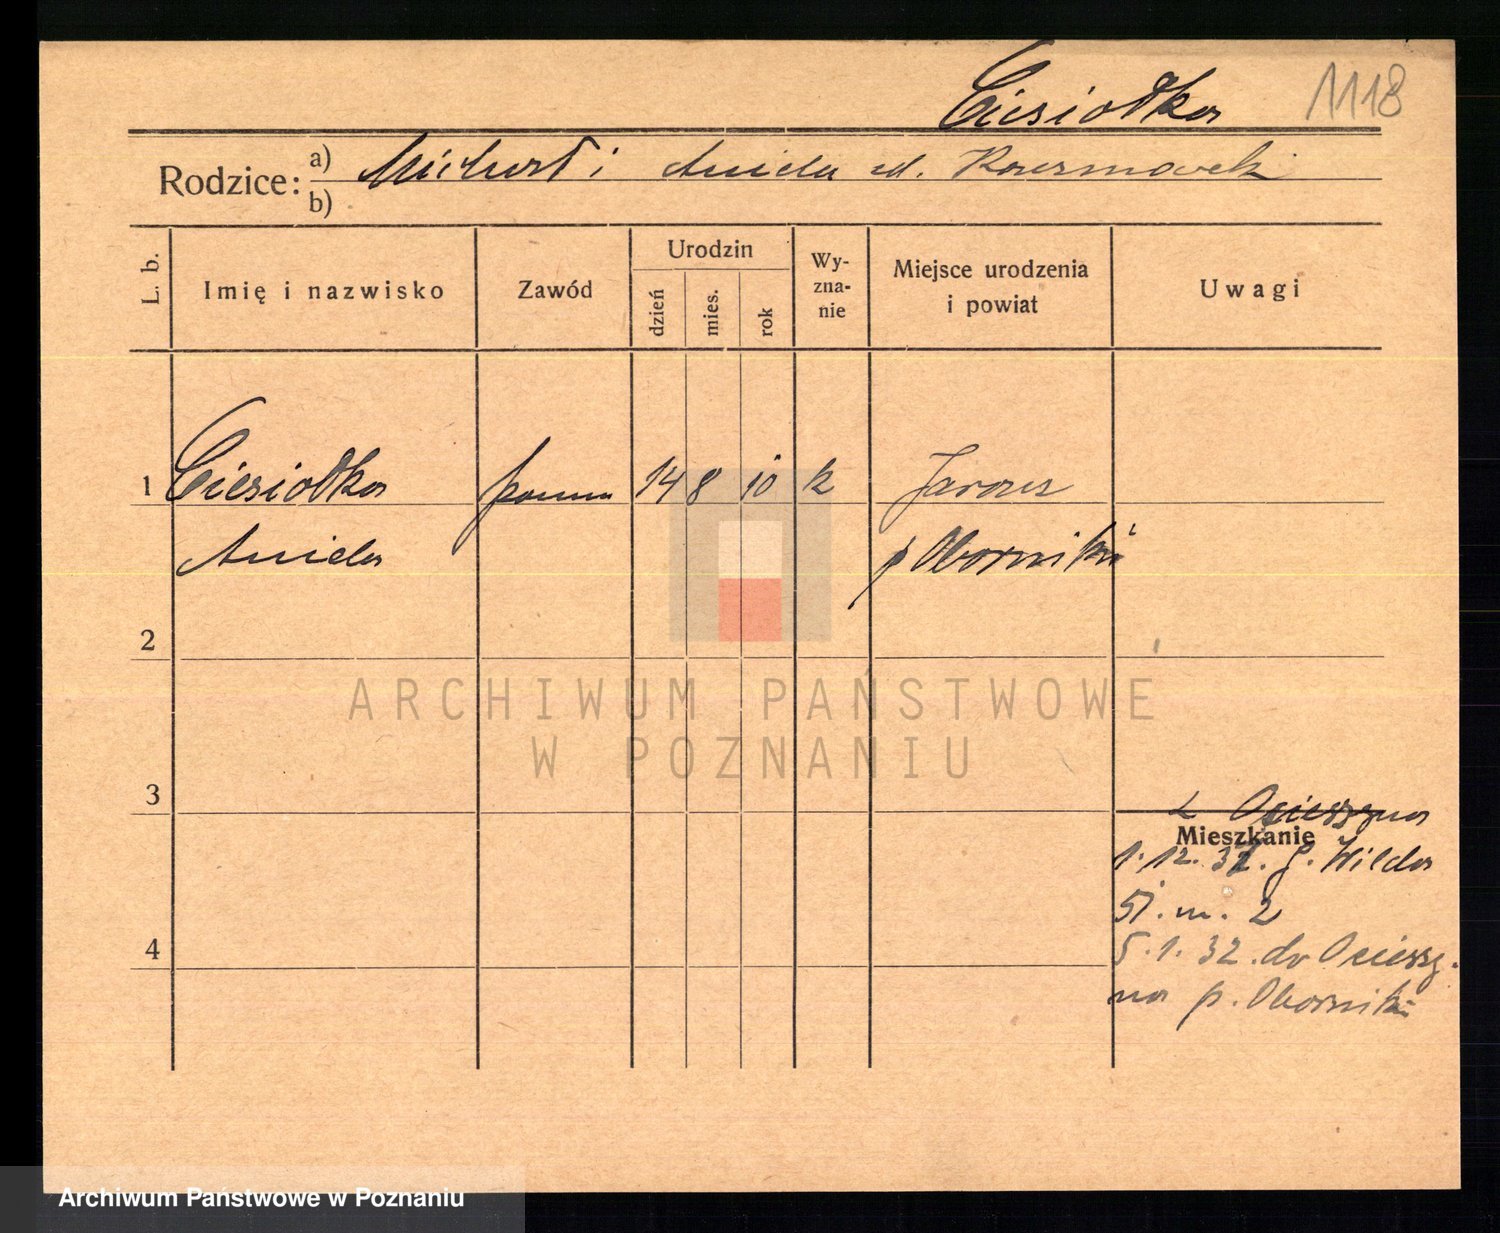 Ciesiołka 1118
Rodzice: a) Michał i Aniela zd. Kaczmarek
b)
L. b. Imię i nazwisko Zawód Urodzin Wyznanie Miejsce urodzenia i powiat Uwagi
dzień mies. rok
1 Ciesiołka panna 14 8 10 k Jaracz
Aniela p Oborniki
2
ARCHIWUM PAŃSTWOWE
W POZNANIU
3
z Ocieszyna
Mieszkanie
1.12.31. g. Wilda
51. m. 2
4 5.1.32. do Ociesz.
na p. Oborniki
Archiwum Państwowe w Poznaniu